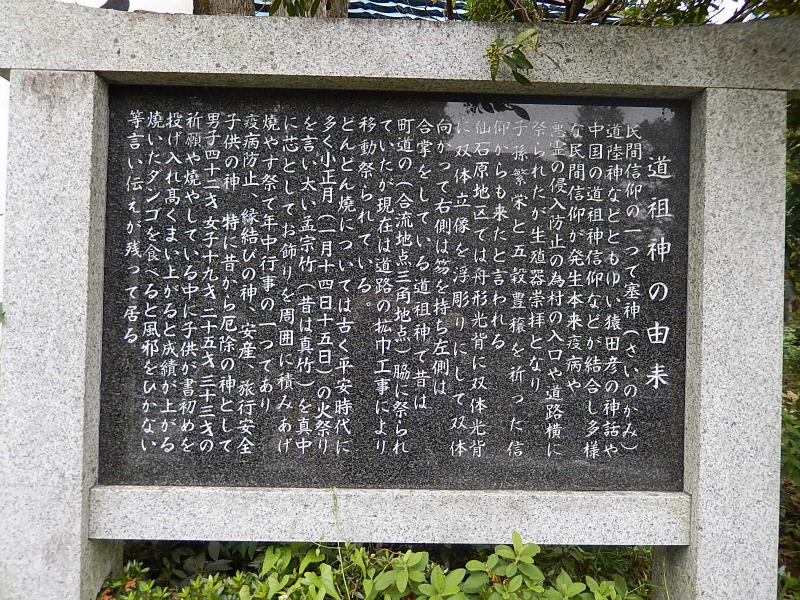 道祖神の由来
民間信仰の一つで塞神（さいのかみ）
道陸神などともゆい猿田彦の神話や
中国の道祖神信仰などが結合し多様
な民間信仰が発生本来疫病や
悪霊の侵入防止の為村の入口や道路横に
祭られたが生殖器崇拝となり
子孫繁栄と五穀豊穣を祈った信
仰からも来たと言われる
仙石原地区では舟形光背に双体光背
に双体立像を浮彫りにして双体
向かって右側は笏を持ち左側は
合掌をしている道祖神で昔は
町道の（合流地点三角地点）脇に祭られ
ていたが現在は道路の拡巾工事により
移動祭られている。
どんどん焼については古く平安時代に
多く小正月（一月十四日十五日）の火祭り
を言い太い孟宗竹（昔は真竹）を真中
に芯としてお飾りを周囲に積みあげ
燒やす祭で年中行事の一つであり
疫病防止、縁結びの神、安産、旅行安全
子供の神　特に昔から厄除の神として
男子四十二才女子十九才二十五才三十三才の
祈願や燒やしている中に子供が書初めを
投げ入れ髙くまい上がると成績が上がる
燒いたダンゴを食べると風邪をひかない
等言い伝えが残って居る